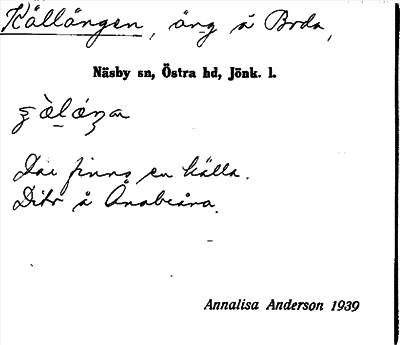 Källängen, äng å Boda,
Näsby sn, Östra hd, Jönk. l.
Där finns en källa.
Ditr å
Annalisa Anderson 1939